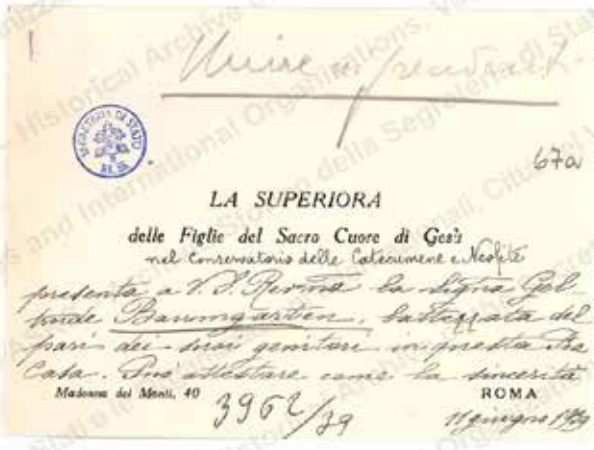 Unire ai precedenti
SEGRETERIA DI STATO
67a
LA SUPERIORA
delle Figlie del Sacro Cuore di Gesù
nel Conservatorio delle Catecumene e Neofite
presenta a V. S. Revma la Signa Gel-
trude Baumgarten, battezzata del
pari dei suoi genitori in questa Pia
Casa. Può attestare come la sincerità
Madonna dei Monti, 40
ROMA
3962/39
11 giugno 1939